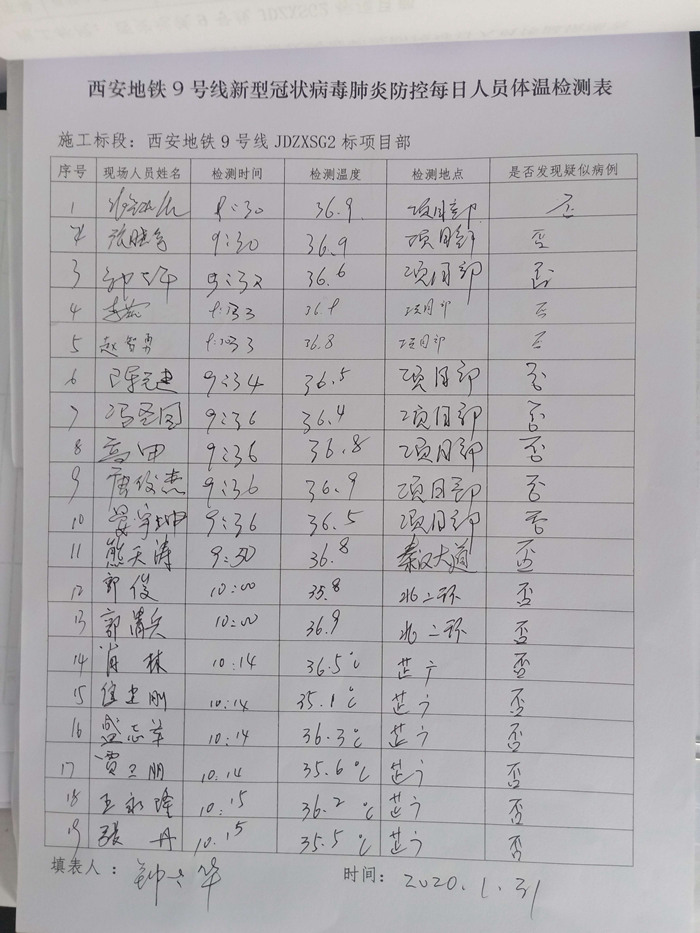 西安地铁9号线新型冠状病毒肺炎防控每日人员体温检测表
施工标段：西安地铁9号线JDZXSG2标项目部
序号 现场人员姓名 检测时间 检测温度 检测地点 是否发现疑似病例
1 36.9 项目部 否
9:30 36.9 项目部 否
3 9:32 36.6 项目部 否
4 9:33 项目部 否
5 赵智勇 9:33 36.8 项目部 否
6 9:34 36.5 项目部 否
7 9:36 36.4 项目部 否
8 9:36 36.8 项目部 否
9 唐俊杰 9:36 36.9 项目部 否
10 9:36 36.5 项目部 否
11 熊天涛 9:30 36.8 秦汉大道 否
12 郭俊 10:00 35.8 北二环 否
13 郭 10:00 36.9 北二环 否
14 肖林 10:14 36.5℃ 否
15 10:14 35.1℃ 否
16 盛志华 10:14 36.3℃ 否
17 贾 朋 10.14 35.6℃ 否
18 王永隆 10:15 36.2℃ 否
19 张丹 10.15 35.5℃ 否
填表人： 时间：2020.1.31